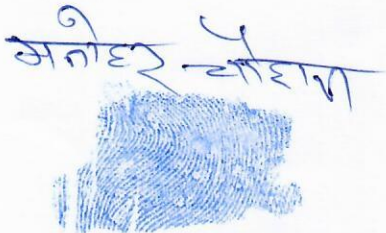 मनोहर चौहान